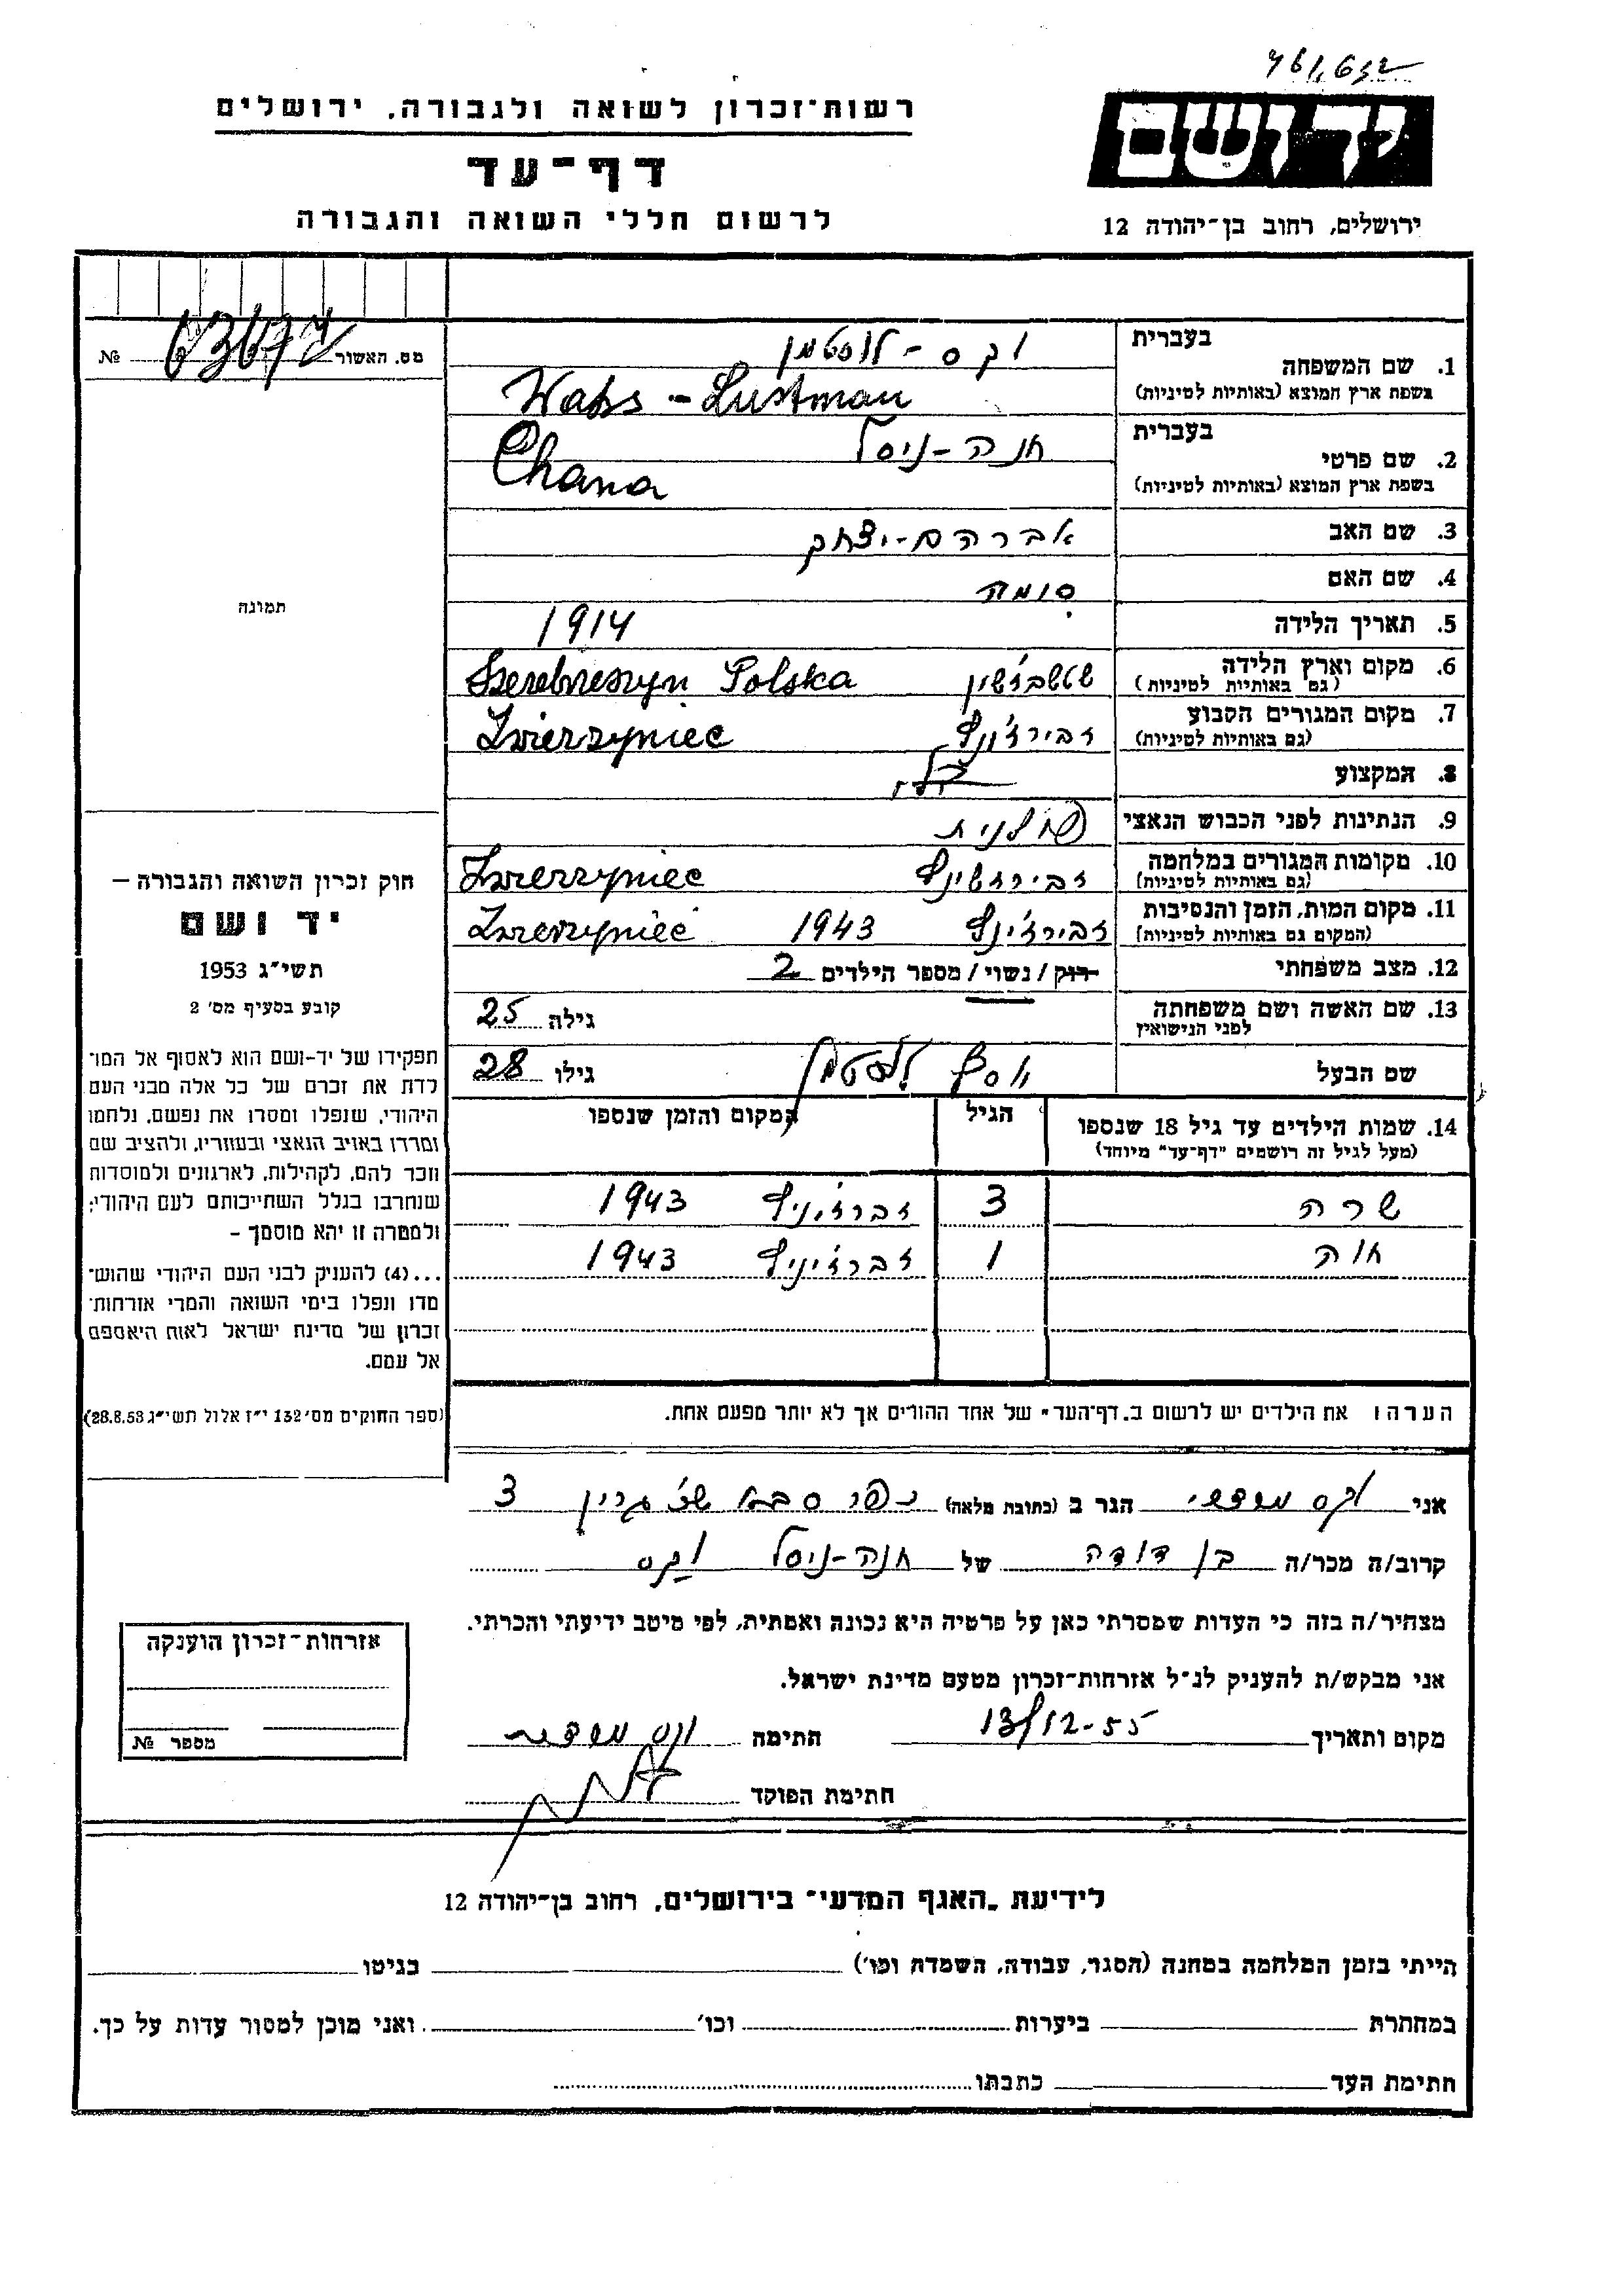 רשות-זכרון לשואה ולגבורה, ירושלים
דף-עד
לרשום חללי השואה והגבורה
יד ושם
ירושלים, רחוב בן-יהודה 12
מס. האשור №
תמונה
חוק זכרון השואה והגבורה –
יד ושם
תשי"ג 1953
קובע בסעיף מס' 2
תפקידו של יד-ושם הוא לאסוף אל המו-
לדת את זכרם של כל אלה מבני העם
היהודי, שנפלו ומסרו את נפשם, נלחמו
ומרדו באויב הנאצי ובעוזריו, ולהציב שם
וזכר להם, לקהילות, לארגונים ולמוסדות
שנחרבו בגלל השתייכותם לעם היהודי;
ולמטרה זו יהא מוסמך –
...(4) להעניק לבני העם היהודי שהוש-
מדו ונפלו בימי השואה והמרי אזרחות-
זכרון של מדינת ישראל לאות היאספם
אל עמם.
(ספר החוקים מס' 132 י"ז אלול תשי"ג 28.8.53)
בעברית וקס - לוסטמן
1. שם המשפחה
בשפת ארץ המוצא (באותיות לטיניות) Waks - Lustman
בעברית חנה-ניסל
2. שם פרטי
בשפת ארץ המוצא (באותיות לטיניות) Chana
3. שם האב אברהם-יצחק
4. שם האם סומה
5. תאריך הלידה 1914
6. מקום וארץ הלידה
(גם באותיות לטיניות) שטשברז'שין Szerebreszyn Polska
7. מקום המגורים הקבוע
(גם באותיות לטיניות) זבירז'ונץ Zwierzyniec
8. המקצוע
9. הנתינות לפני הכבוש הנאצי פולנית
10. מקומות המגורים במלחמה
(גם באותיות לטיניות) זבירזשינץ Zwierzyniec
11. מקום המות, הזמן והנסיבות
(המקום גם באותיות לטיניות) זבירז'ינץ 1943 Zwierzyniec
12. מצב משפחתי רווק / נשוי / מספר הילדים 2
13. שם האשה ושם משפחתה
לפני הנישואין גילה 25
שם הבעל יוסף לוסטמן גילו 28
14. שמות הילדים עד גיל 18 שנספו הגיל המקום והזמן שנספו
(מעל לגיל זה רושמים "דף-עד" מיוחד)
שרה 3 זברז'יניץ 1943
חוה 1 זברז'יניץ 1943
הערה: את הילדים יש לרשום ב"דף-העד" של אחד ההורים אך לא יותר מפעם אחת.
אני וקס הגר ב (כתובת מלאה) כפר סבא שכ' גרין 3
קרוב/ה מכר/ה בן דודה של חנה-ניסל וקס
מצהיר/ה בזה כי העדות שמסרתי כאן על פרטיה היא נכונה ואמתית, לפי מיטב ידיעתי והכרתי.
אני מבקש/ת להעניק לנ"ל אזרחות-זכרון מטעם מדינת ישראל.
מקום ותאריך 13/12-55 חתימה וקס
חתימת הפוקד
אזרחות-זכרון הוענקה
מספר №
לידיעת "האגף המדעי" בירושלים, רחוב בן-יהודה 12
הייתי בזמן המלחמה במחנה (הסגר, עבודה, השמדה וכו') בגיטו
במחתרת ביערות וכו' ואני מוכן למסור עדות על כך.
חתימת העד כתבתו